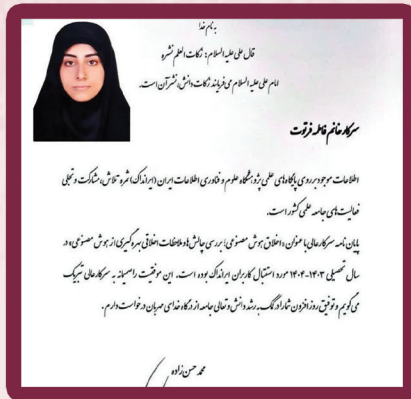 به نام خدا
قال علی علیه السلام: زکات العلم نشره
امام علی علیه السلام می فرمایند زکات دانش، نشر آن است.
سرکار خانم فاطمه فرتوت
اطلاعات موجود بر روی پایگاه‌های علمی پژوهشگاه علوم و فناوری اطلاعات ایران (ایرانداک) ثمره تلاش، مشارکت و تجلی
فعالیت‌های جامعه علمی کشور است.
پایان نامه سرکار عالی با عنوان «اخلاق هوش مصنوعی: بررسی چالش‌ها و ملاحظات اخلاقی بهره گیری از هوش مصنوعی» در
سال تحصیلی ۱۴۰۳-۱۴۰۴ مورد استقبال کاربران ایرانداک بوده است. این موفقیت را صمیمانه به سرکار عالی تبریک
می گویم و توفیق روز افزون شما را در کمک به رشد دانش و تعالی جامعه از درگاه خدای مهربان درخواست دارم.
محمد حسن زاده